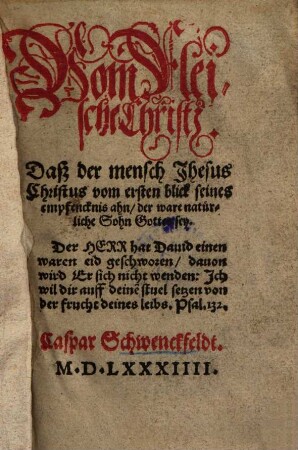 Vom Flei-
sche Christi.
Daß der mensch Jhesus
Christus vom ersten blick seines
empfencknis ahn/ der ware natür-
liche Sohn Gottes sey.
Der HERR hat Dauid einen
waren eid geschworen/ dauon
wird Er sich nicht wenden: Ich
wil dir auff deinē stuel setzen von
der frucht deines leibs. Psal. 132.
Caspar Schwenckfeldt.
M. D. LXXXIIII.